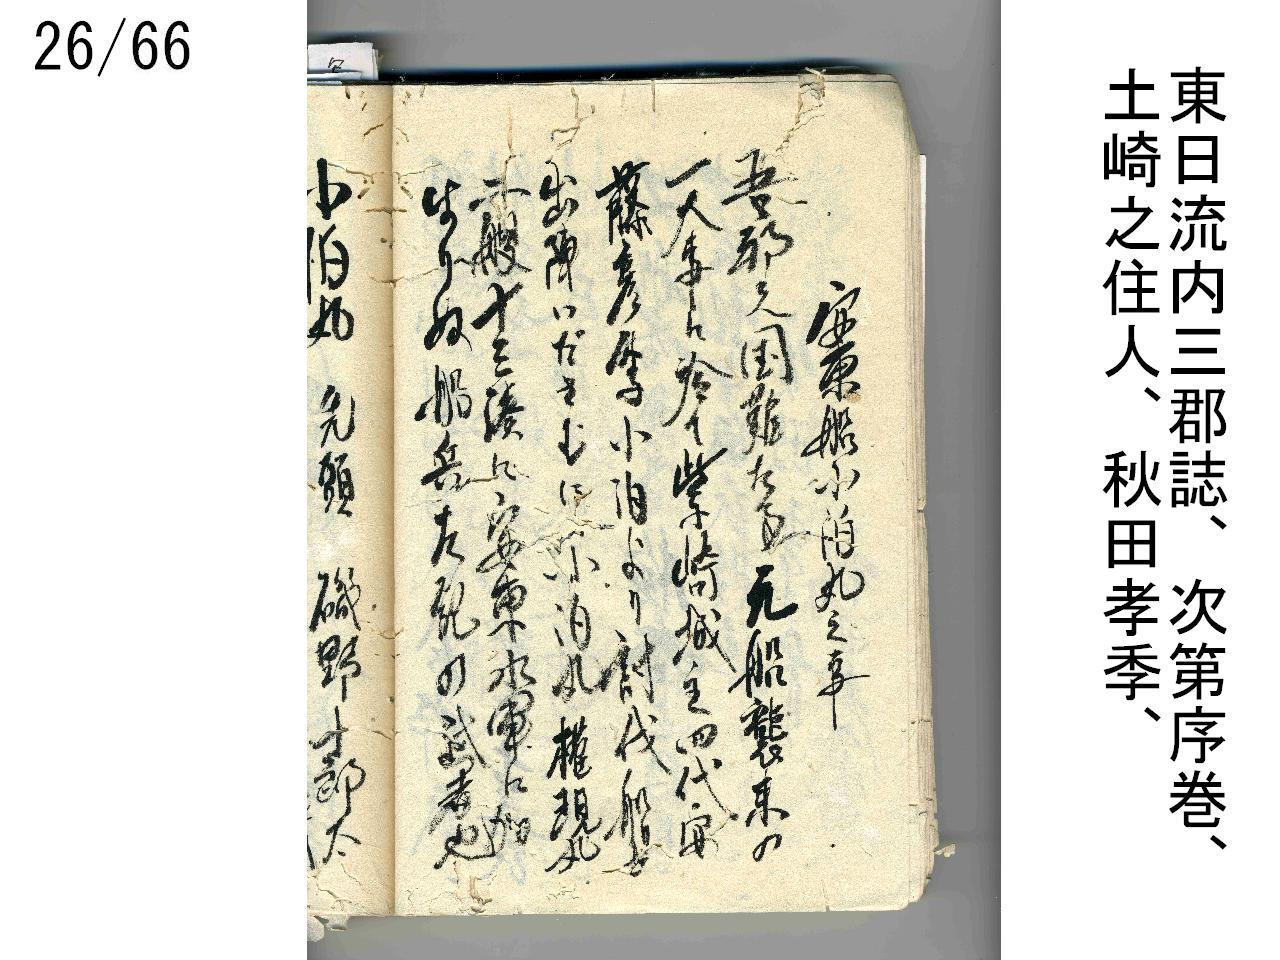 26/66
東日流内三郡誌、次第序巻、
土崎之住人、秋田孝季、
安東船小泊丸之事
吾朝之国難たる元船襲来の
一大事に於て柴崎城主四代安
藤彦厚小泊より討伐船を
出陣いださむに小泊丸権現丸
二艘十三湊に安東水軍に加
はりぬ船兵右記の武者也
小泊丸 先頭 磯野十郎太